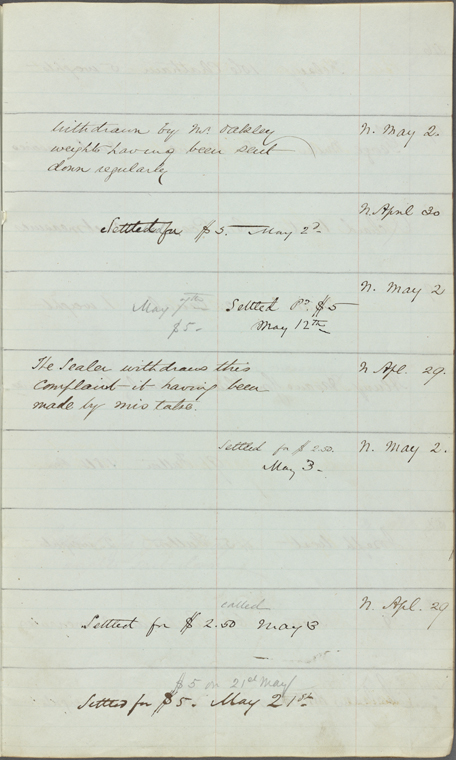 withdrawn by Mr. Oakley N. May 2.
weights having been sent
down regularly
N April 30
Settled for $5. May 2d
N. May 2
May 7th Settled Pd $5
$5- May 12th
The Sealer withdraws this N Apl. 29.
complaint it having been
made by mistake.
Settled for $2.50. N. May 2.
May 3-
called N. Apl. 29
Settled for $2.50 May 3
$5 on 21st May
Settled for $5. May 21st